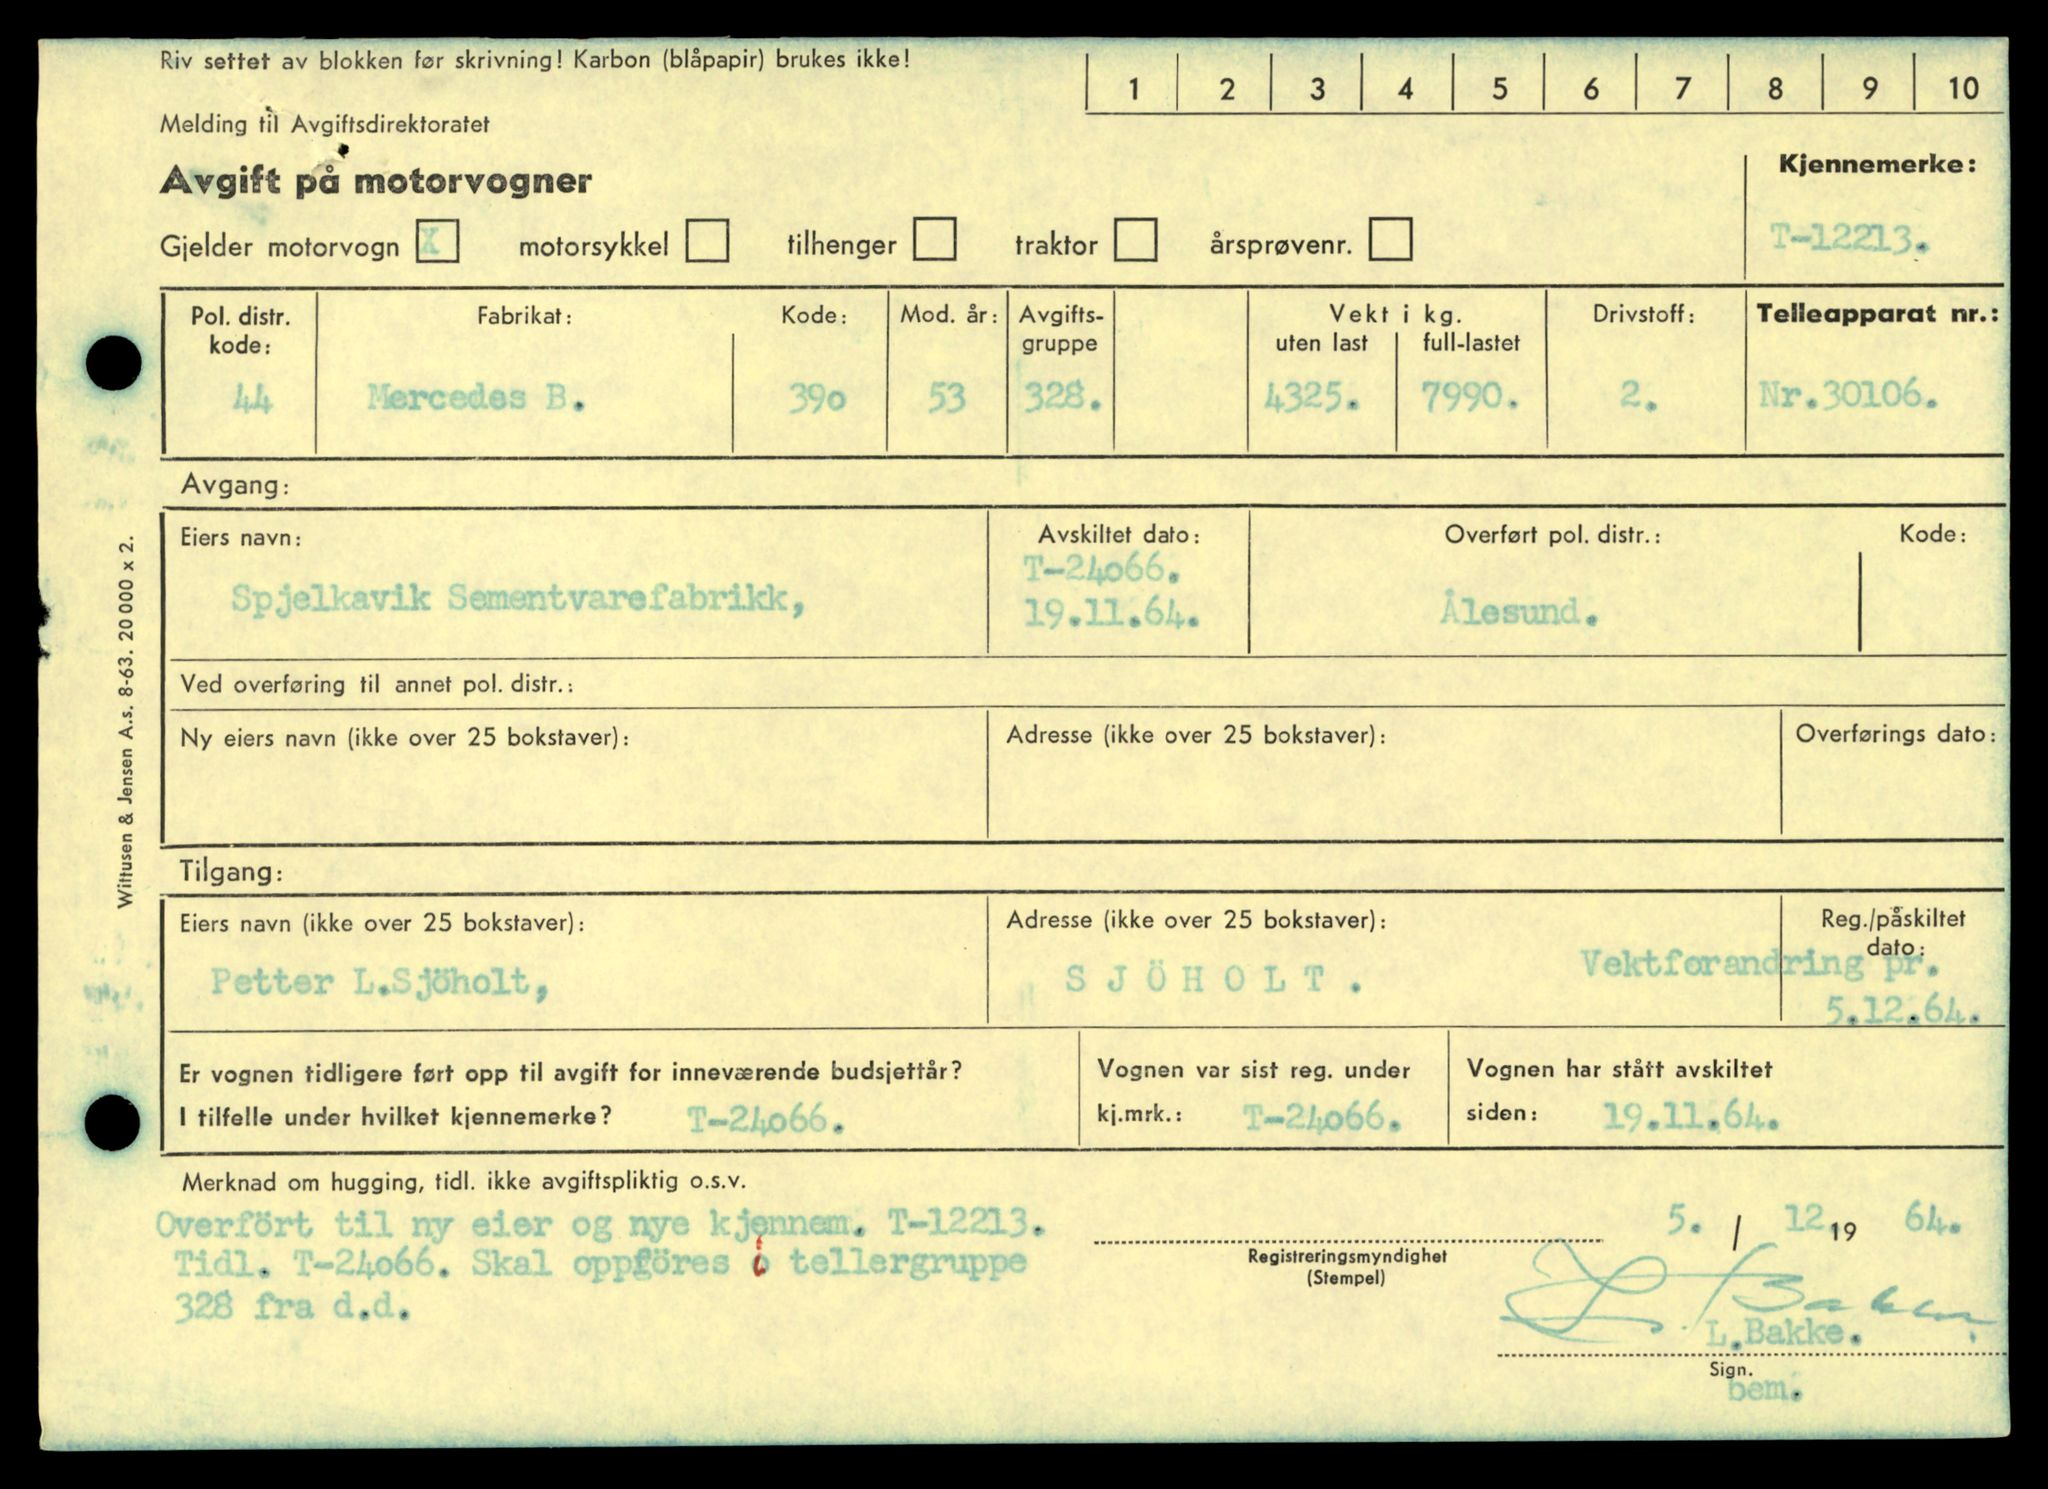 Riv settet av blokken før skrivning! Karbon (blåpapir) brukes ikke!
1 2 3 4 5 6 7 8 9 10
Melding til Avgiftsdirektoratet
Avgift på motorvogner
Kjennemerke:
Gjelder motorvogn X motorsykkel tilhenger traktor årsprøvenr.
T-12213.
Pol. distr. kode: Fabrikat: Kode: Mod. år: Avgifts-gruppe Vekt i kg. uten last full-lastet Drivstoff: Telleapparat nr.:
44 Mercedes B. 39o 53 328. 4325. 7990. 2. Nr.30106.
Avgang:
Eiers navn: Avskiltet dato: Overført pol. distr.: Kode:
T-24o66.
Spjelkavik Sementvarefabrikk, 19.11.64. Ålesund.
Ved overføring til annet pol. distr.:
Ny eiers navn (ikke over 25 bokstaver): Adresse (ikke over 25 bokstaver): Overførings dato:
Tilgang:
Eiers navn (ikke over 25 bokstaver): Adresse (ikke over 25 bokstaver): Reg./påskiltet
dato:
Petter L.Sjöholt, SJÖHOLT. Vektforandring pr.
5.12.64.
Er vognen tidligere ført opp til avgift for inneværende budsjettår? Vognen var sist reg. under Vognen har stått avskiltet
I tilfelle under hvilket kjennemerke? T-24o66. kj.mrk.: T-24o66. siden: 19.11.64.
Merknad om hugging, tidl. ikke avgiftspliktig o.s.v.
Overfört til ny eier og nye kjennem. T-12213.
5. / 12 19 64.
Tidl. T-24o66. Skal oppföres i tellergruppe
Registreringsmyndighet
(Stempel)
328 fra d.d.
L. Bakke.
L.Bakke.
Sign.
bem.
Wittusen & Jensen A.s. 8-63. 20 000 x 2.